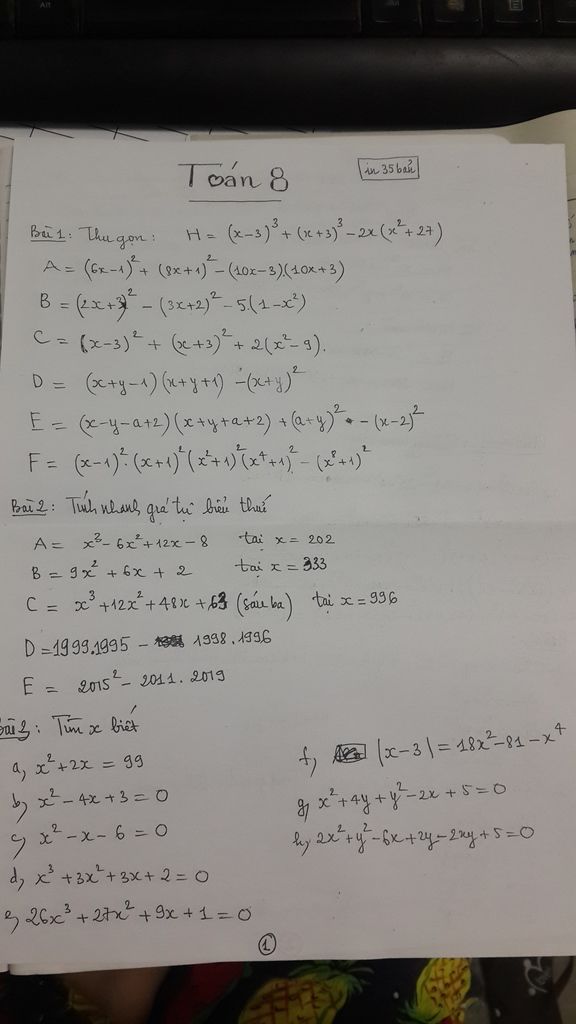 Toán 8
in 35 bản
Bài 1: Thu gọn: H = (x-3)³ + (x+3)³ - 2x(x²+27)
A = (6x-1)² + (8x+1)² - (10x-3).(10x+3)
B = (2x+3)² - (3x+2)² - 5.(1-x²)
C = (x-3)² + (x+3)² + 2(x²-9).
D = (x+y-1)(x+y+1) - (x+y)²
E = (x-y-a+2)(x+y+a+2) + (a+y)² - (x-2)²
F = (x-1)².(x+1)²(x²+1)²(x⁴+1)² - (x⁸+1)²
Bài 2: Tính nhanh giá trị biểu thức
A = x³-6x²+12x-8 tại x = 202
B = 9x² + 6x + 2 tại x = 333
C = x³+12x²+48x+63 (sáu ba) tại x = 996
D = 1999.1995 - 1998.1996
E = 2015² - 2011.2019
Bài 3: Tìm x biết
a, x²+2x = 99
b, x²-4x+3 = 0
c, x²-x-6 = 0
d, x³+3x²+3x+2 = 0
e, 26x³+27x²+9x+1 = 0
f, |x-3| = 18x²-81-x⁴
g, x²+4y+y²-2x+5 = 0
h, 2x²+y²-6x+2y-2xy+5=0
1